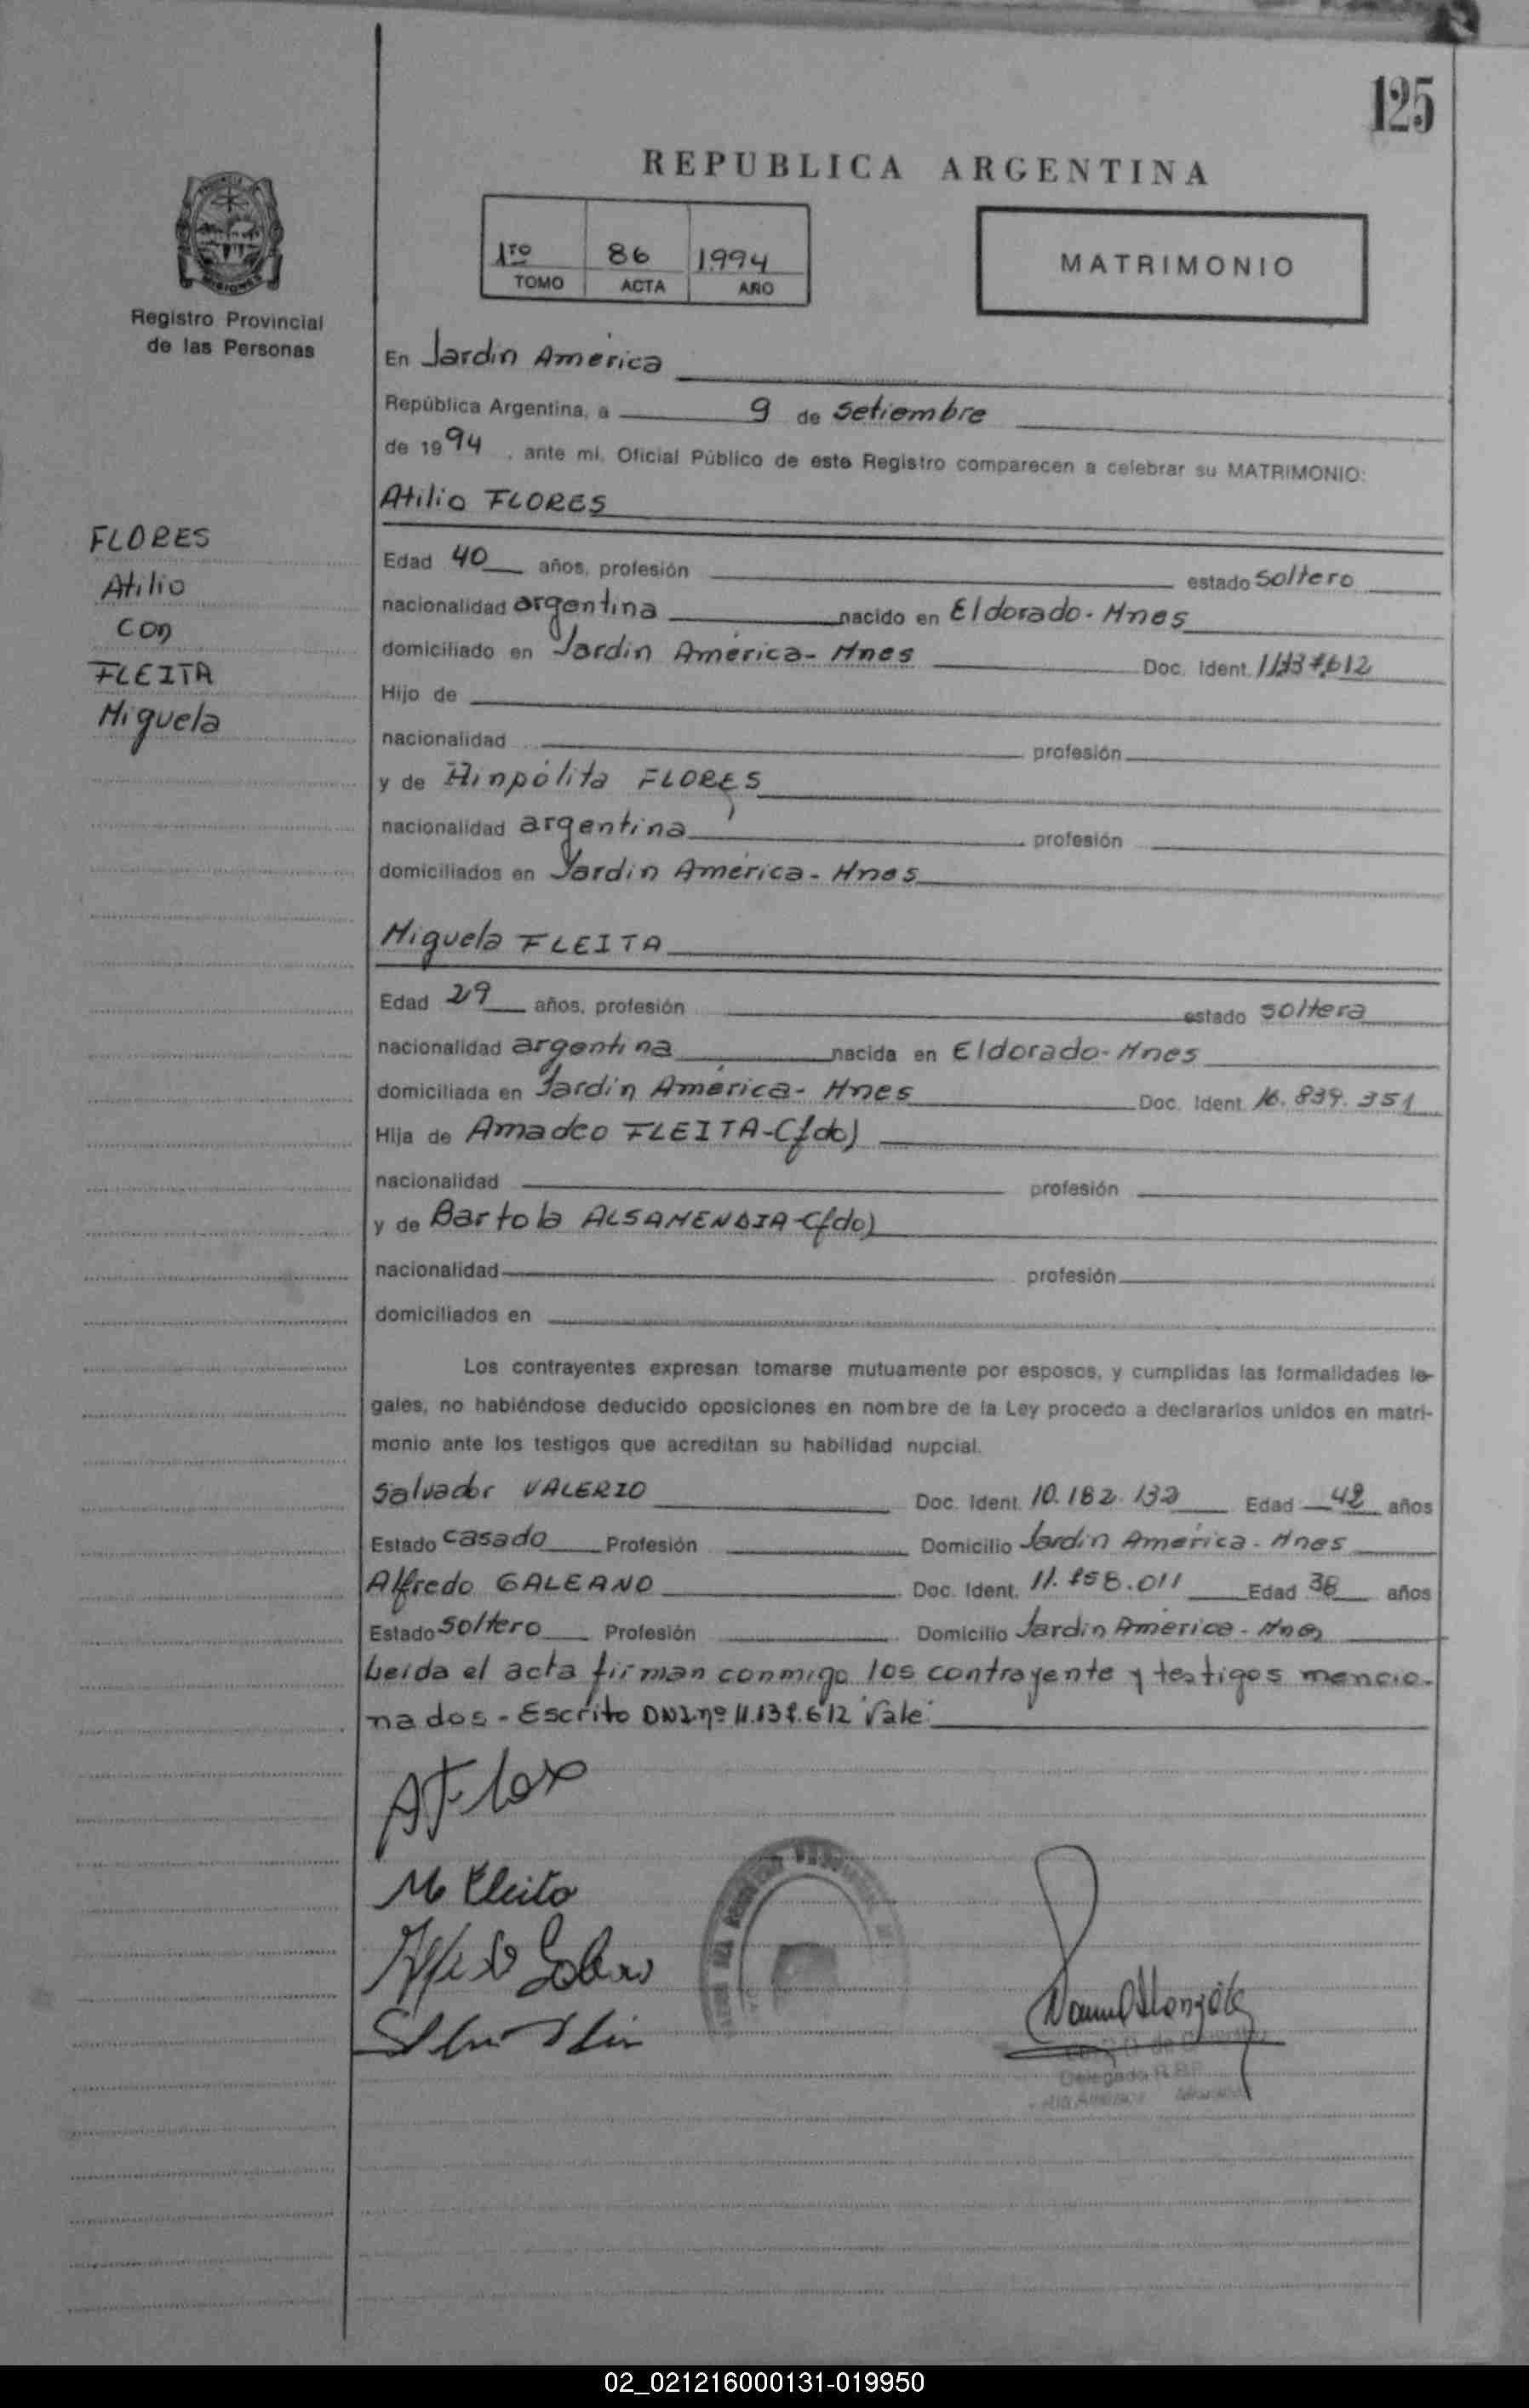 125
REPUBLICA ARGENTINA
1ro 86 1994
TOMO ACTA AÑO
MATRIMONIO
Registro Provincial
de las Personas
FLORES
Atilio
con
FLEITA
Miguela
En Jardín América
República Argentina, a 9 de setiembre
de 1994, ante mi, Oficial Público de este Registro comparecen a celebrar su MATRIMONIO:
Atilio FLORES
Edad 40 años, profesión estado soltero
nacionalidad argentina nacido en Eldorado-Mnes
domiciliado en Jardín América-Mnes Doc. Ident.
Hijo de
nacionalidad profesión
y de Hinpólita FLORES
nacionalidad argentina profesión
domiciliados en Jardín América-Mnes
Miguela FLEITA
Edad 29 años, profesión estado soltera
nacionalidad argentina nacida en Eldorado-Mnes
domiciliada en Jardín América-Mnes Doc. Ident. 16.839.351
Hija de Amadeo FLEITA-(fdo)
nacionalidad profesión
y de Bartola ALSAMENDIA-(fdo)
nacionalidad profesión
domiciliados en
Los contrayentes expresan tomarse mutuamente por esposos, y cumplidas las formalidades le-
gales, no habiéndose deducido oposiciones en nombre de la Ley procedo a declararlos unidos en matri-
monio ante los testigos que acreditan su habilidad nupcial.
Salvador VALERIO Doc. Ident. 10.182.132 Edad 42 años
Estado casado Profesión Domicilio Jardín América-Mnes
Alfredo GALEANO Doc. Ident. Edad 38 años
Estado soltero Profesión Domicilio Jardín América-Mnes
Leída el acta firman conmigo los contrayente y testigos mencio-
nados-Escrito DNI nº Vale
M Fleita
Delegada
02_021216000131-019950